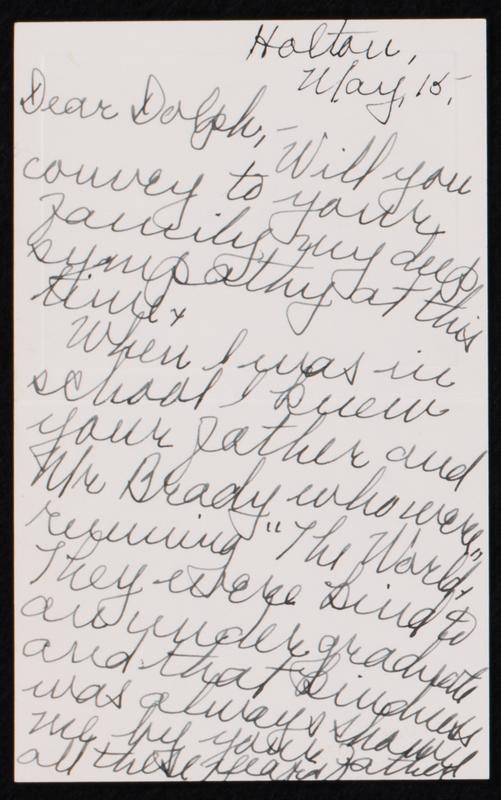 Holton,
May, 15,
Dear Dolph,-
Will you
convey to your
family, my deep
sympathy at this
time.
When I was in
school I knew
your father and
Mr Brady who were
running "The World".
They were kind to
an undergraduate
and that kindness
was always shown
me by your father
all these years